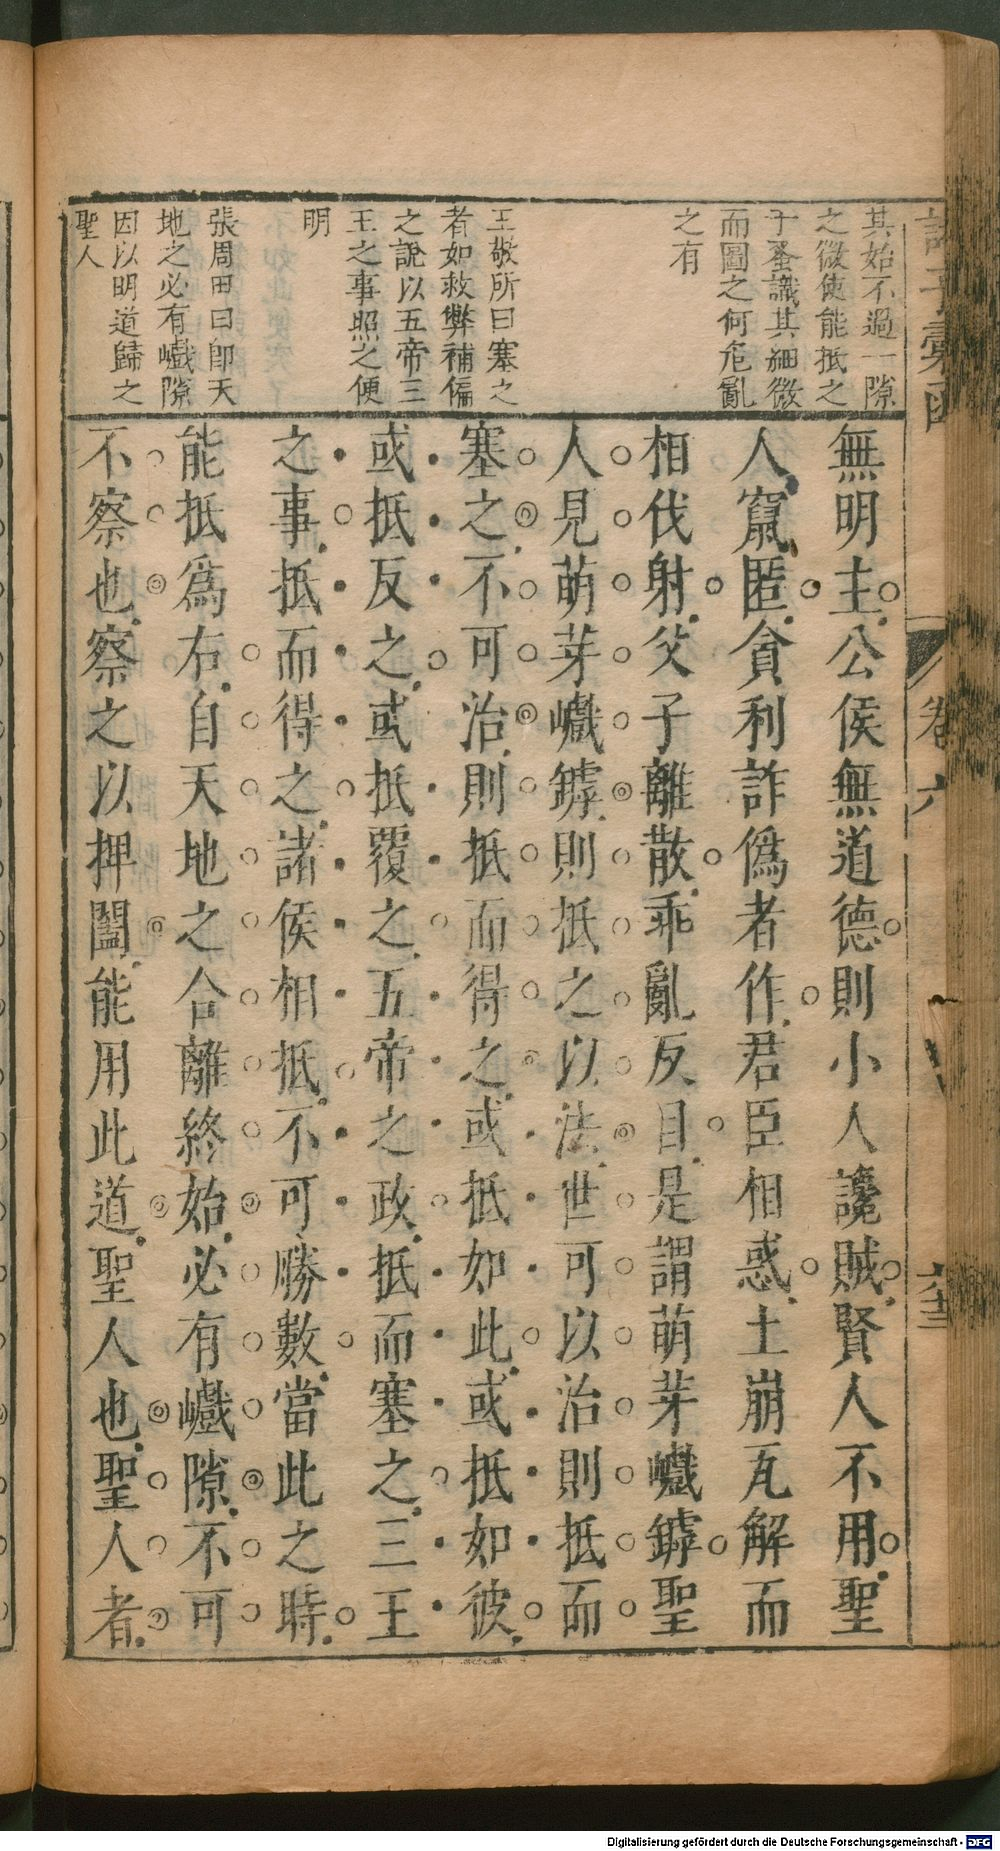 其始不過一隙
之微使能抵之
于蚤識其細微
而圖之何危亂
之有
王敬所曰塞之
者如救弊補偏
之說以五帝三
王之事照之便
明
張周田曰卽天
地之必有巇隙
因以明道歸之
聖人
無明主公侯無道德則小人讒賊賢人不用聖
人竄匿貪利詐僞者作君臣相惑土崩瓦解而
相伐射父子離散乖亂反目是謂萌芽巇罅聖
人見萌芽巇罅則抵之以法世可以治則抵而
塞之不可治則抵而得之或抵如此或抵如彼
或抵反之或抵覆之五帝之政抵而塞之三王
之事抵而得之諸侯相抵不可勝數當此之時
能抵爲右自天地之合離終始必有巇隙不可
不察也察之以捭闔能用此道聖人也聖人者
卷六
Digitalisierung gefördert durch die Deutsche Forschungsgemeinschaft - DFG